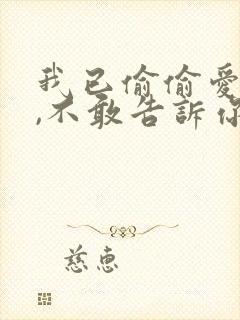 我已偷偷愛
,不敢告訴你
慈惠